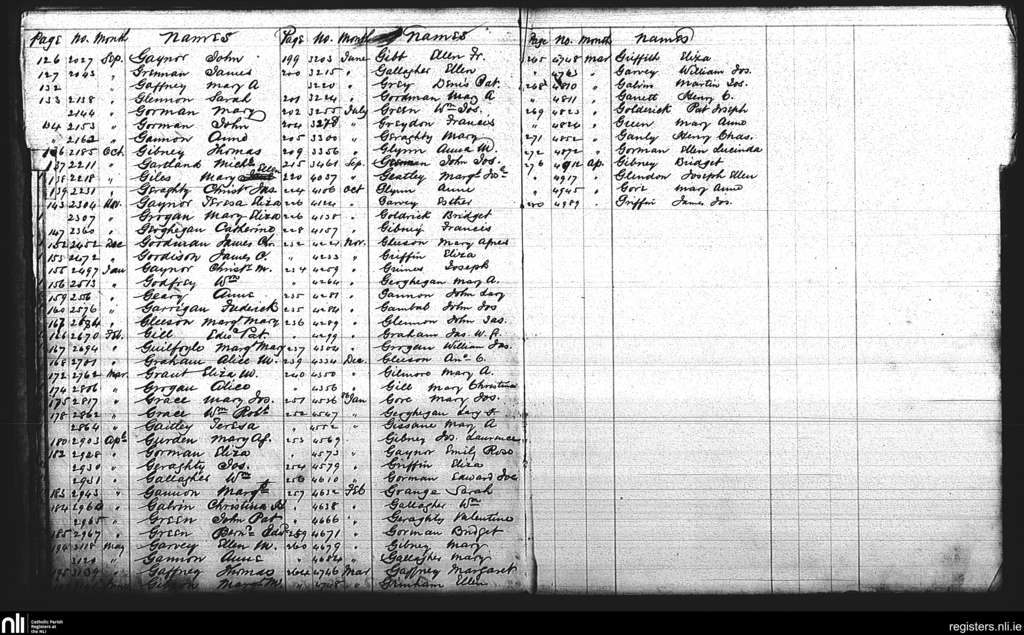 Page No. Month Names
126 2027 Sep. Gaynor John
127 2043 " Grennan James
132 Gaffney Mary A
133 2118 " Glennon Sarah
2144 " Gorman Mary
134 2153 " Gorman John
" 2162 " Gannon Anne
136 2185 Oct. Gibney Thomas
137 2211 " Gartland Mich
138 2218 " Giles Mary Ellen
139 2231 " Geraghty Christ Jas
143 2304 Nov. Gaynor Teresa Eliza
2307 " Grogan Mary Eliza
147 2360 " Geoghegan Catherine
152 2452 Dec Goodman James Chr.
153 2472 " Goodison James C.
155 2497 Jan Gaynor Christ. M.
156 2513 " Godfrey Wm
159 256 " Geary Anne
160 2576 " Garrigan Frederick
Gleeson Margt Mary
166 2670 Feb. Gill Edw Pat
167 2694 " Guilfoyle Margt Mary
168 2701 " Graham Alice M.
172 2762 Mar Grant Eliza M.
174 2806 " Grogan Alice
175 2817 " Grace Mary Jos.
178 2862 " Grace Wm Robt
2864 " Gaitley Teresa
180 2903 Apl Gurden Mary Ag.
182 2928 " Gorman Eliza
2930 " Geraghty Jos.
2931 " Gallagher Wm
183 2943 " Gannon Margt
184 2960 " Galvin Christina
2965 " Green John Pat
185 2967 " Green Bernd Edw
2118 May Garvey Ellen M.
2120 " Gannon Anne
Gaffney Thomas
Page No. Month Names
199 3203 June Gibt Ellen Fr.
200 3215 " Gallagher Ellen
3220 " Grey Denis Pat.
201 3224 " Goodman May A
202 3255 July Green Wm Jos.
204 3278 " Greydon Francis
205 3300 " Geraghty Mary
209 3356 " Glynn Anna M.
215 3461 Sep. Gorman John Jos.
220 4037 " Geatley Margt Jos
224 4106 Oct Glynn Anne
226 4124 " Garvey Esther
226 4138 " Goldrick Bridget
228 4157 " Gibney Francis
232 4221 Nov. Gleeson Mary Agnes
" 4233 " Griffin Eliza
234 4259 " Grimes Joseph
" 4264 " Geoghegan May A.
235 4281 " Gannon John Lary
235 4284 " Gambal John Jos
236 4289 " Glennon John Jas.
" 4299 " Graham Jas. W. A.
237 4304 " Grogan William Jas.
239 4334 Dec. Gleeson Ane C.
240 4350 " Gilmore Mary A.
" 4356 " Gill Mary Christina
251 4536 Jan Gore Mary Jos.
252 4547 " Geoghegan
" 4552 " Gissane Mary A
253 4569 " Gibney Jos. Laurence
" 4573 " Gaynor Emily Rose
254 4579 " Griffin Eliza
256 4610 " Gorman Edward Jos
257 4632 Feb Grange Sarah
" 4638 " Gallagher Wm
" 4666 " Geraghty Valentine
259 4671 " Gorman Bridget
260 4679 " Gibney Mary
" 4684 " Gallagher Mary
264 4746 Mar Gaffney Margaret
" 4748 " Grimham Ellen
Page No. Month Names
265 4748 Mar Griffith Eliza
" 4763 " Garvey William Jos.
268 4810 " Galvin Martin Jos.
" 4811 " Garett Henry C.
269 4823 " Golderick Pat Joseph
" 4824 " Green Mary Anne
271 4852 " Ganly Henry Chas.
272 4872 " Gorman Ellen Lucinda
276 4912 Ap. Gibney Bridget
" 4917 " Glendon Joseph Ellen
" 4945 " Gore Mary Anne
280 4989 " Griffin James Jos.
nli
Catholic Parish
Registers at
the NLI
registers.nli.ie